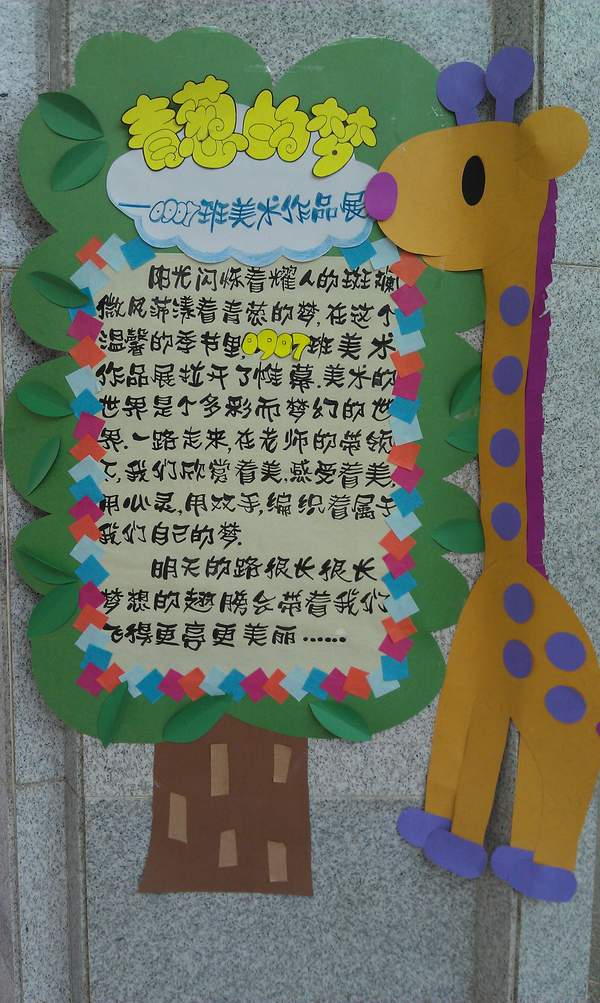 青葱的梦
—0907班美术作品展
阳光闪烁着耀人的斑斓
微风荡漾着青葱的梦,在这个
温馨的季节里,0907班美术
作品展拉开了帷幕.美术的
世界是个多彩而梦幻的世
界.一路走来,在老师的带领
下,我们欣赏着美,感受着美,
用心灵,用双手,编织着属于
我们自己的梦.
明天的路很长很长
梦想的翅膀会带着我们
飞得更高更美丽……